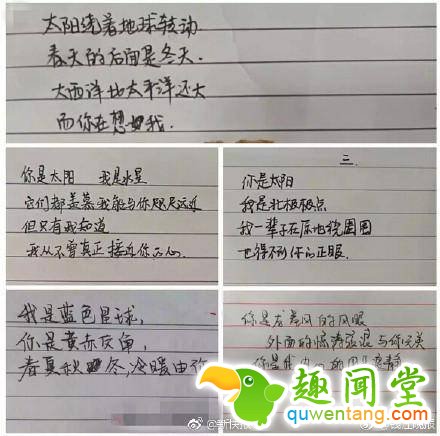 太阳绕着地球转动
春天的后面是冬天.
大西洋比太平洋还大
而你在想我.
你是太阳 我是水星
它们都羡慕我能与你咫尺远近
但只有我知道
我从不曾真正接近你的心
三.
你是太阳
我是北极极点
我一辈子在原地绕圈圈
也得不到你的正眼.
我是蓝色星球,
你是黄赤交角,
春夏秋冬,冷暖由你
你是龙卷风的风眼
外面的惊涛骇浪与你无关
你是我
趣闻堂
quwentang.com